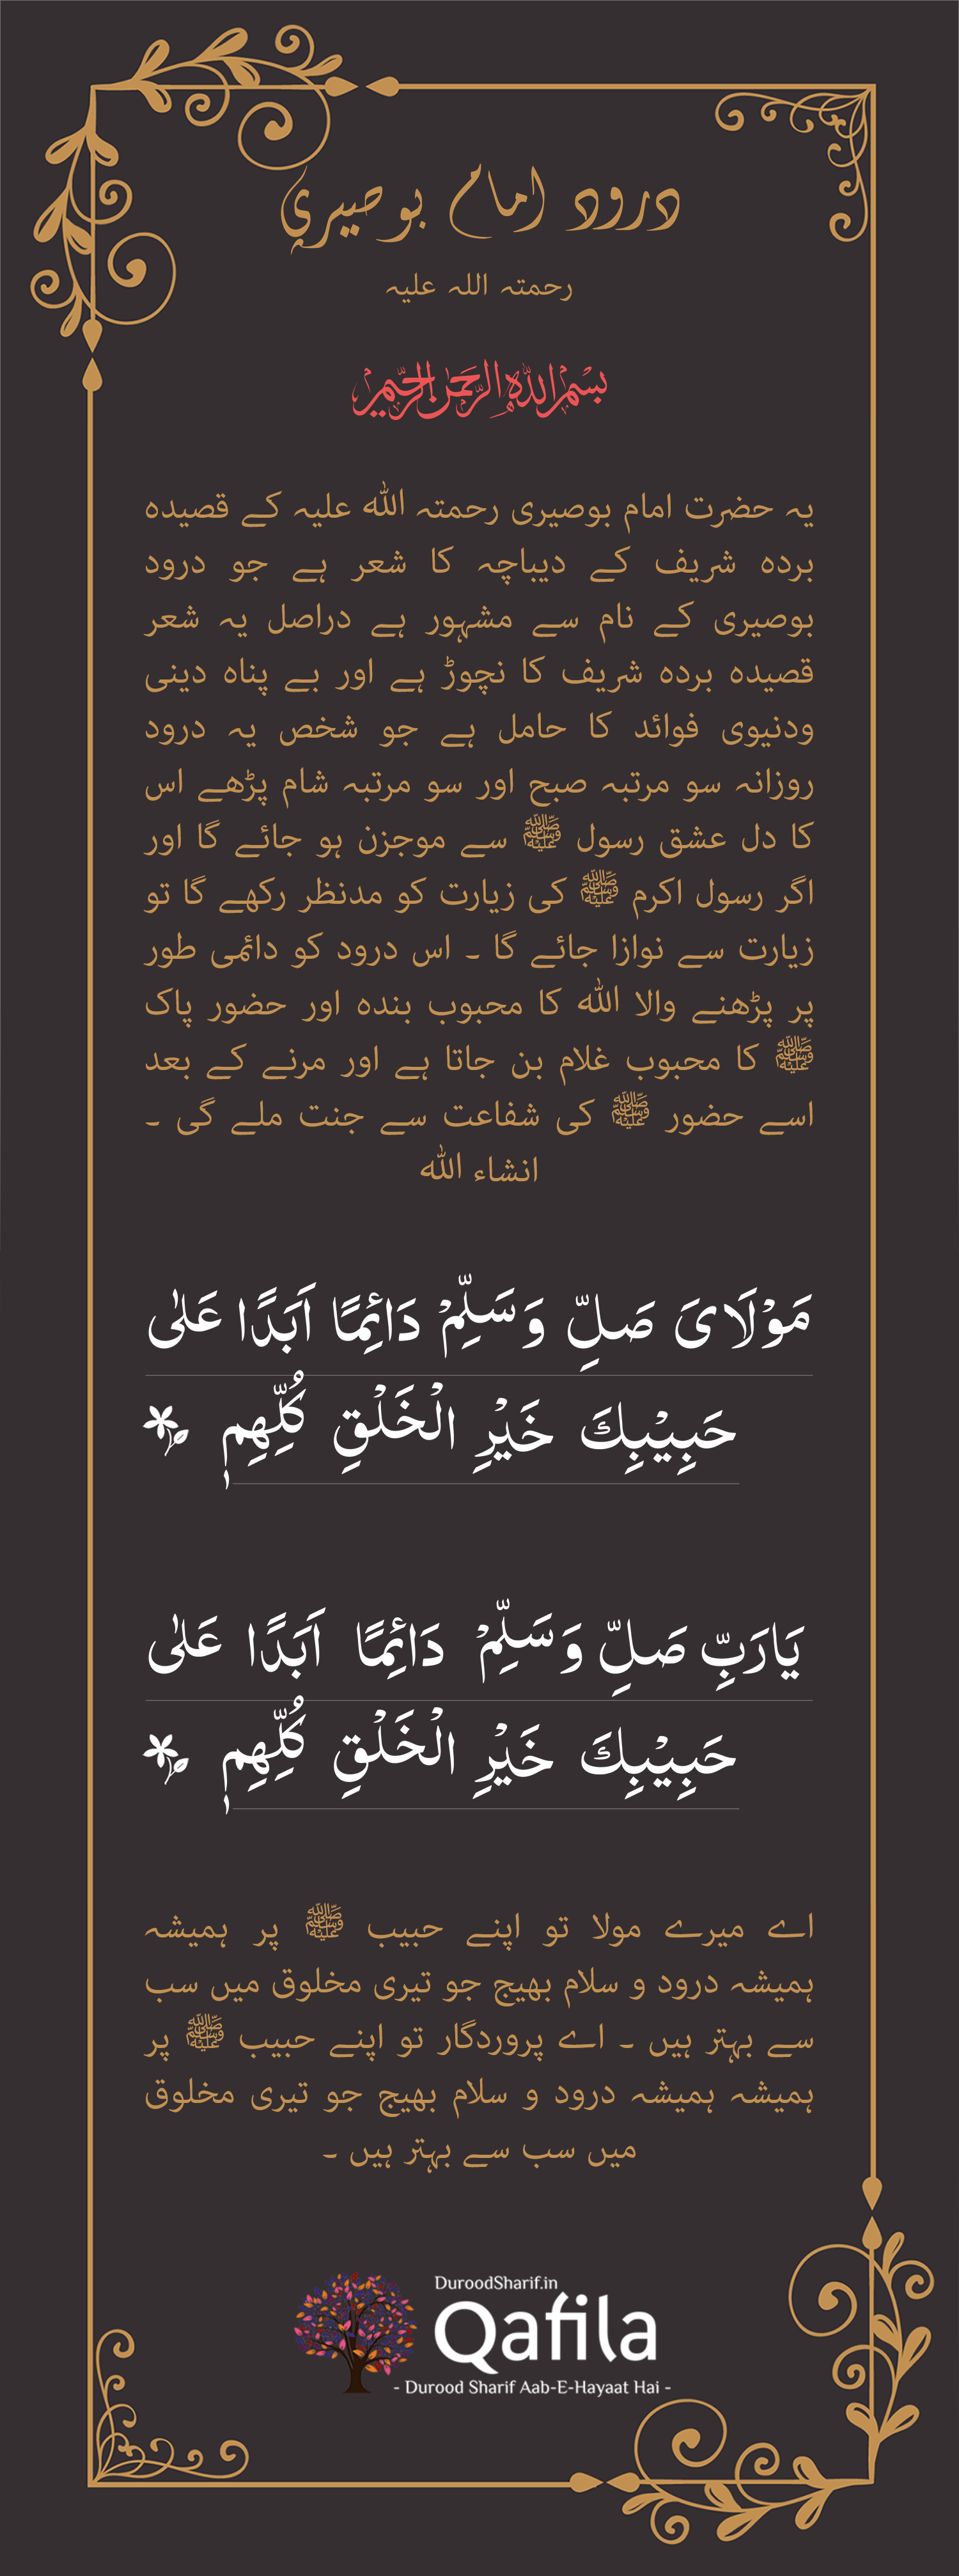 درود امام بوصیری
رحمتہ اللہ علیہ
بسم الله الرحمن الرحيم
یہ حضرت امام بوصیری رحمتہ اللہ علیہ کے قصیدہ
بردہ شریف کے دیباچہ کا شعر ہے جو درود
بوصیری کے نام سے مشہور ہے دراصل یہ شعر
قصیدہ بردہ شریف کا نچوڑ ہے اور بے پناہ دینی
ودنیوی فوائد کا حامل ہے جو شخص یہ درود
روزانہ سو مرتبہ صبح اور سو مرتبہ شام پڑھے اس
کا دل عشق رسول ﷺ سے موجزن ہو جائے گا اور
اگر رسول اکرم ﷺ کی زیارت کو مدنظر رکھے گا تو
زیارت سے نوازا جائے گا ۔ اس درود کو دائمی طور
پر پڑھنے والا اللہ کا محبوب بندہ اور حضور پاک
ﷺ کا محبوب غلام بن جاتا ہے اور مرنے کے بعد
اسے حضور ﷺ کی شفاعت سے جنت ملے گی ۔
انشاء اللہ
مَوْلَایَ صَلِّ وَسَلِّمْ دَائِمًا اَبَدًا عَلٰی
حَبِیْبِكَ خَیْرِ الْخَلْقِ كُلِّهِمٖ
یَارَبِّ صَلِّ وَسَلِّمْ دَائِمًا اَبَدًا عَلٰی
حَبِیْبِكَ خَیْرِ الْخَلْقِ كُلِّهِمٖ
اے میرے مولا تو اپنے حبیب ﷺ پر ہمیشہ
ہمیشہ درود و سلام بھیج جو تیری مخلوق میں سب
سے بہتر ہیں ۔ اے پروردگار تو اپنے حبیب ﷺ پر
ہمیشہ ہمیشہ درود و سلام بھیج جو تیری مخلوق
میں سب سے بہتر ہیں ۔
DuroodSharif.in
Qafila
- Durood Sharif Aab-E-Hayaat Hai -